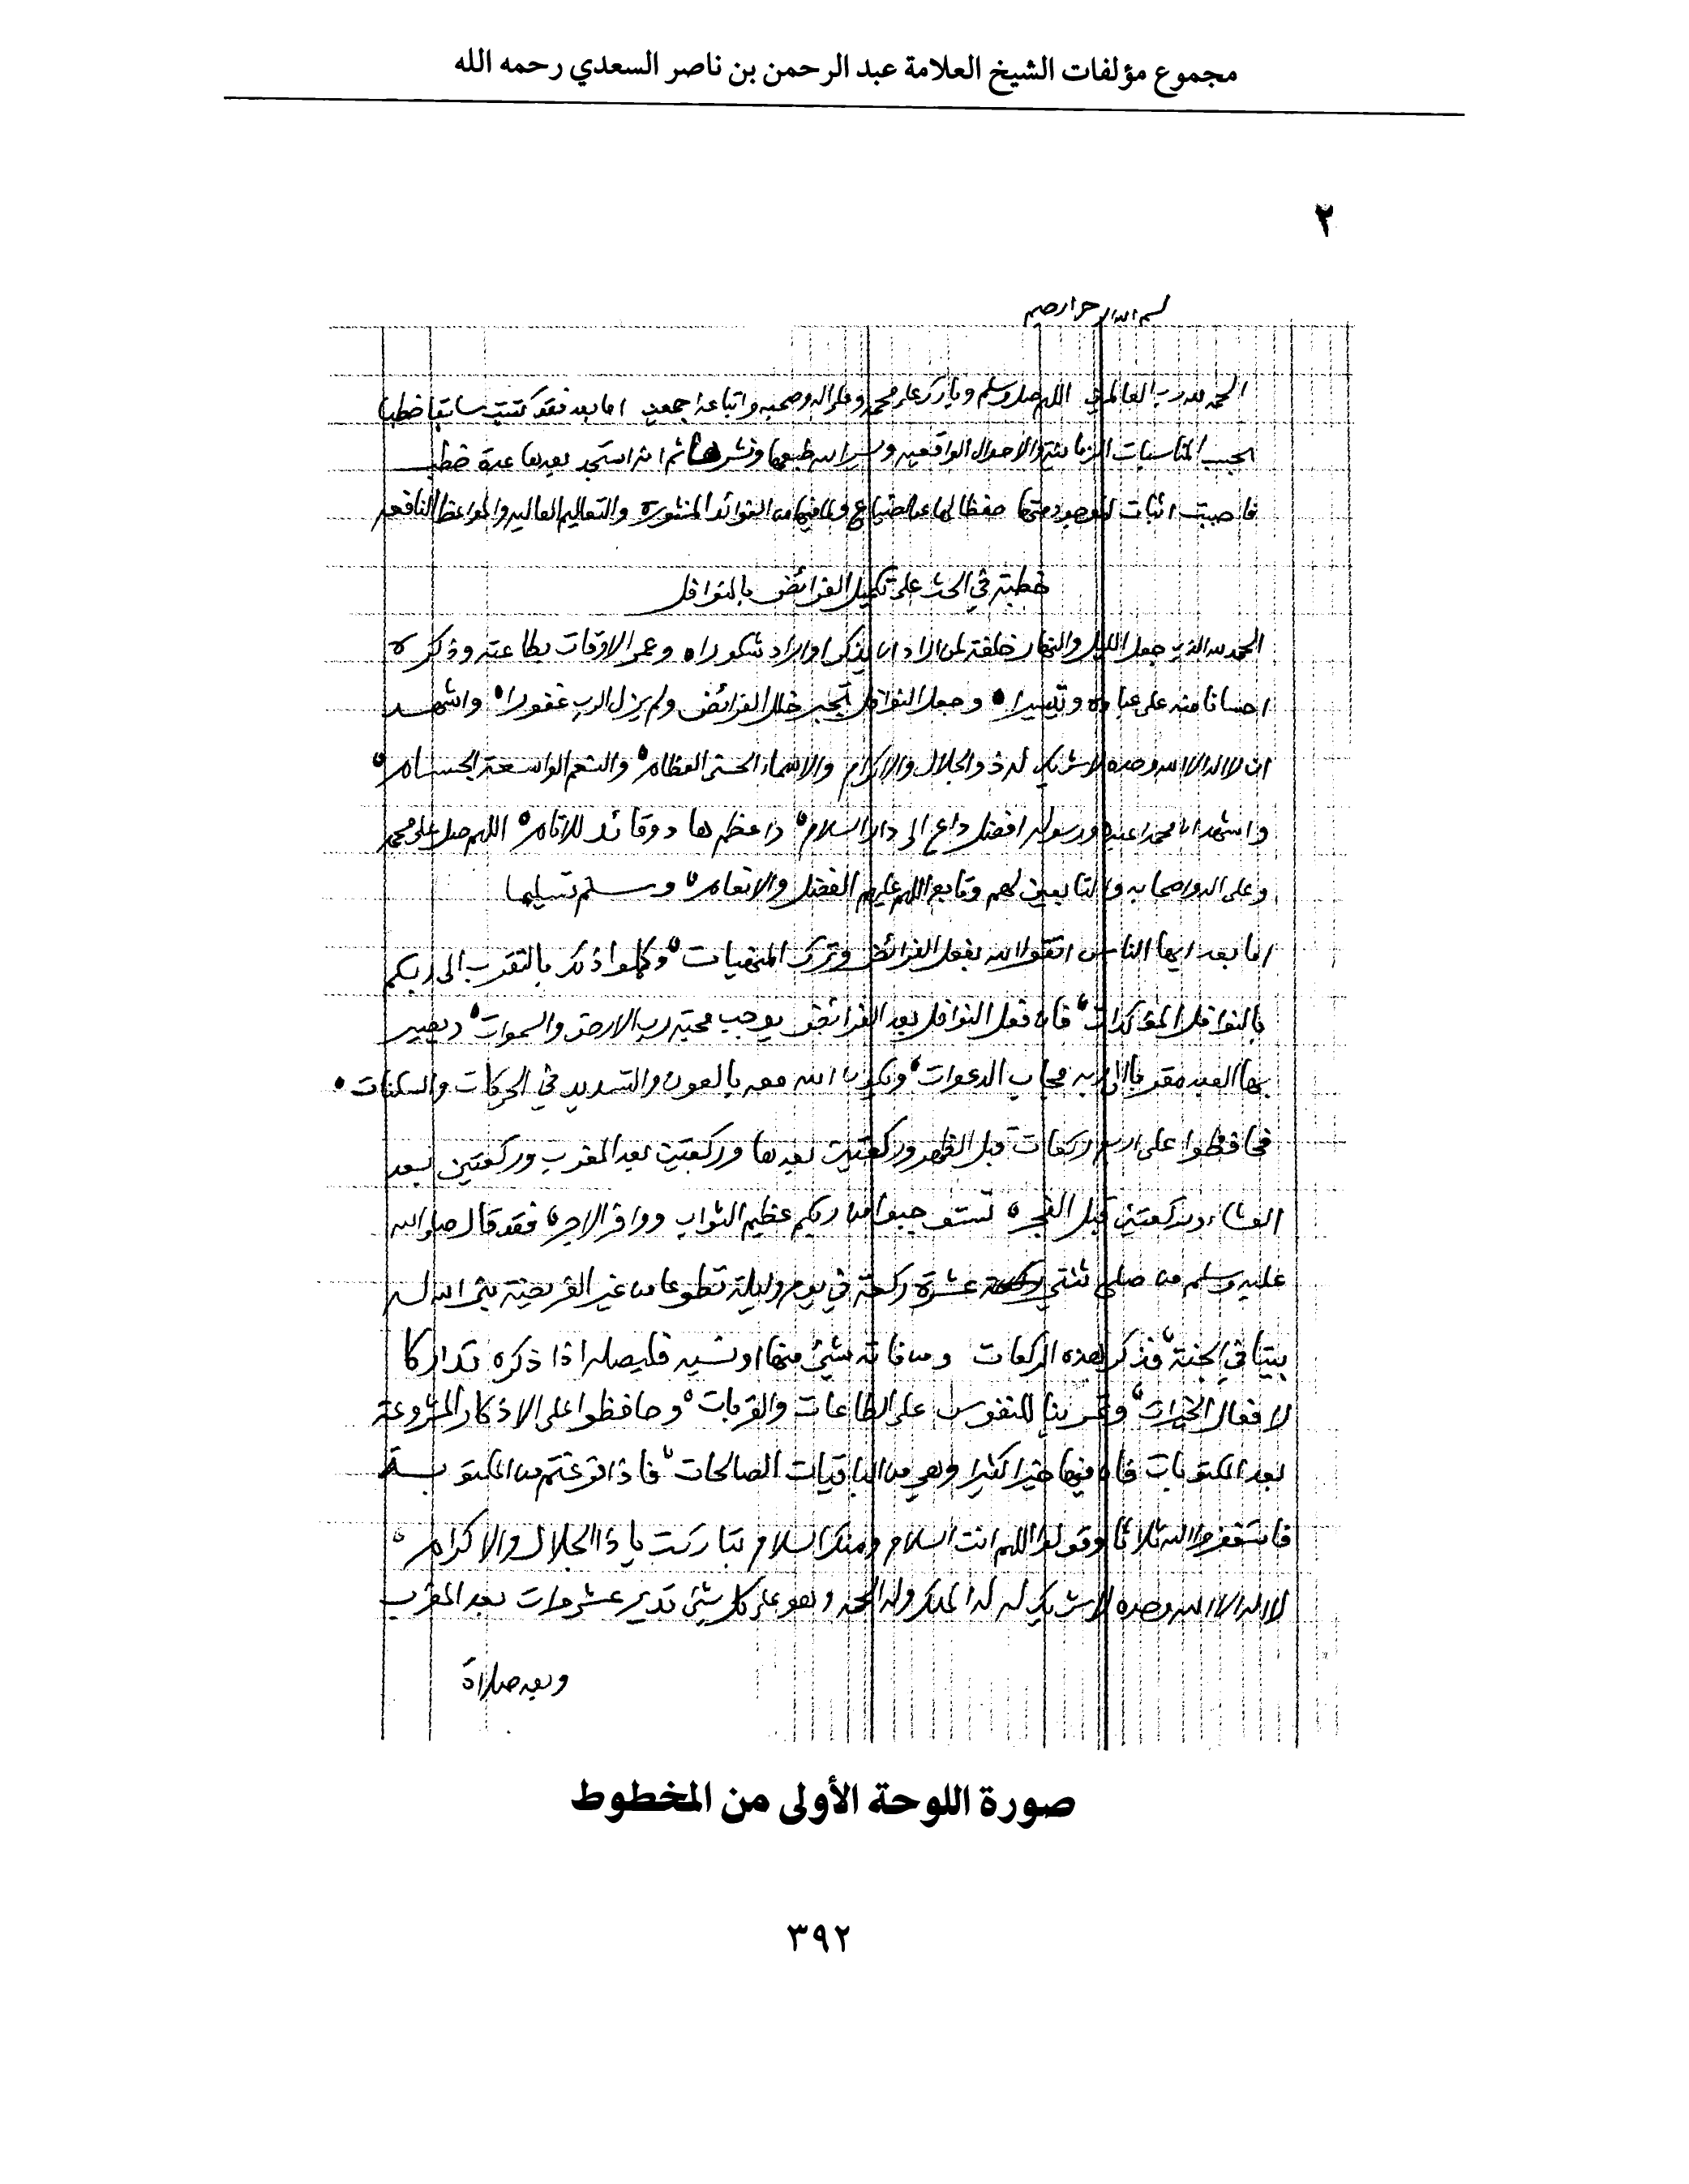 مجموع مؤلفات الشيخ العلامة عبد الرحمن بن ناصر السعدي رحمه الله
٢
بسم الله الرحمن الرحيم
الحمد لله رب العالمين اللهم صل وسلم وبارك على محمد وعلى اله وصحبه واتباعه اجمعين اما بعد فقد كتبت سابقا خطبا
بحسب المناسبات الزمانية والاحوال الواقعيه ويسر الله طبعها ونشرها ثم انه استجد بعدها عدة خطب
فاحببت اثبات الموجود منها حفظا لها عن الضياع ولما فيها من الفوائد المنثوره والتعاليم العاليه والمواعظ النافعه
خطبة في الحث على تكميل الفرائض بالنوافل
الحمد لله الذي جعل الليل والنهار خلفة لمن اراد ان يذكر او اراد شكورا، وعمر الاوقات بطاعته وذكره
احسانا منه على عباده وتيسيرا، وجعل النوافل تجبر خلل الفرائض ولم يزل الرب غفورا، واشهد
ان لا اله الا الله وحده لا شريك له ذو الجلال والاكرام والاسماء الحسنى العظام، والنعم الواسعة الجسام،
واشهد ان محمدا عبده ورسوله افضل داع الى دار السلام، واعظم هاد وقائد للانام، اللهم صل على محمد
وعلى اله واصحابه والتابعين لهم وتابع اللهم عليهم الفضل والانعام، وسلم تسليما
اما بعد ايها الناس اتقوا الله بفعل الفرائض وترك المنهيات، وكملوا ذلك بالتقرب الى ربكم
بالنوافل المؤكدات، فان فعل النوافل بعد الفرائض يوجب محبة رب الارض والسموات، ويصير
بها العبد مقربا الى ربه مجاب الدعوات، ويكون الله معه بالعون والتسديد في الحركات والسكنات،
فحافظوا على اربع ركعات قبل الظهر وركعتين بعدها وركعتين بعد المغرب وركعتين بعد
العشاء وركعتين قبل الفجر، تستوجبوا من ربكم عظيم الثواب ووافر الاجر، فقد قال صلى الله
عليه وسلم من صلى ثنتي عشرة ركعة في يوم وليلة تطوعا من غير الفريضة بنى الله له
بيتا في الجنة، فذكر هذه الركعات ومن فاته شئ منها او نسيه فليصله اذا ذكره تداركا
لافعال الخيرات، وتمرينا للنفوس على الطاعات والقربات، وحافظوا على الاذكار المشروعة
بعد المكتوبات فان فيها خيرا كثيرا وهي من الباقيات الصالحات، فاذا فرغتم من المكتوبة
فاستغفروا الله ثلاثا وقولوا اللهم انت السلام ومنك السلام تباركت يا ذا الجلال والاكرام،
لا اله الا الله وحده لا شريك له له الملك وله الحمد وهو على كل شئ قدير عشر مرات بعد المغرب
وبعد صلاة
صورة اللوحة الأولى من المخطوط
٣٩٢